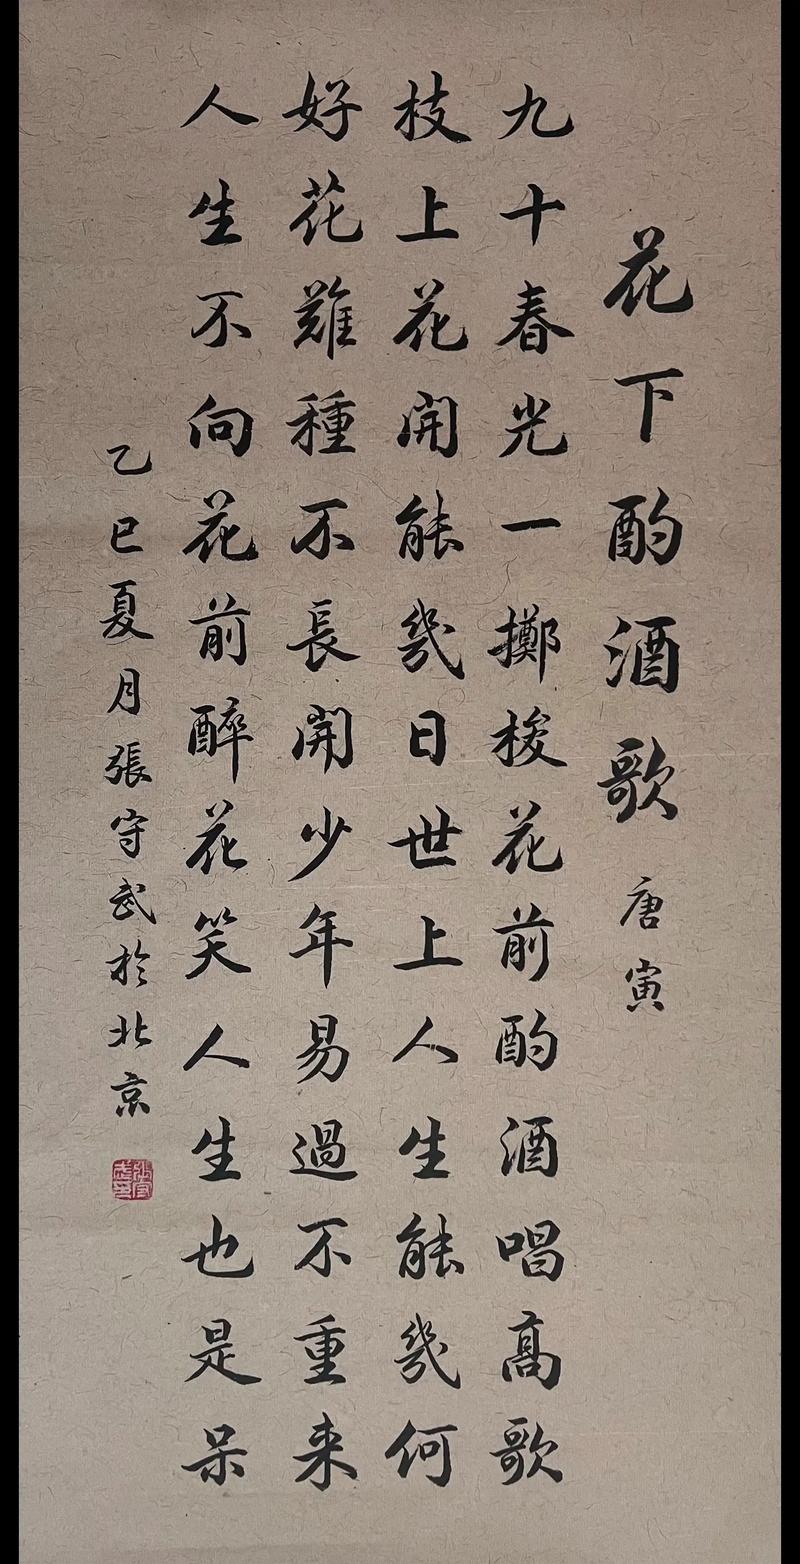 花下酌酒歌 唐寅
九十春光一擲梭花前酌酒唱高歌
枝上花開能幾日世上人生能幾何
好花難種不長開少年易過不重来
人生不向花前醉花笑人生也是呆
乙巳夏月張守武於北京